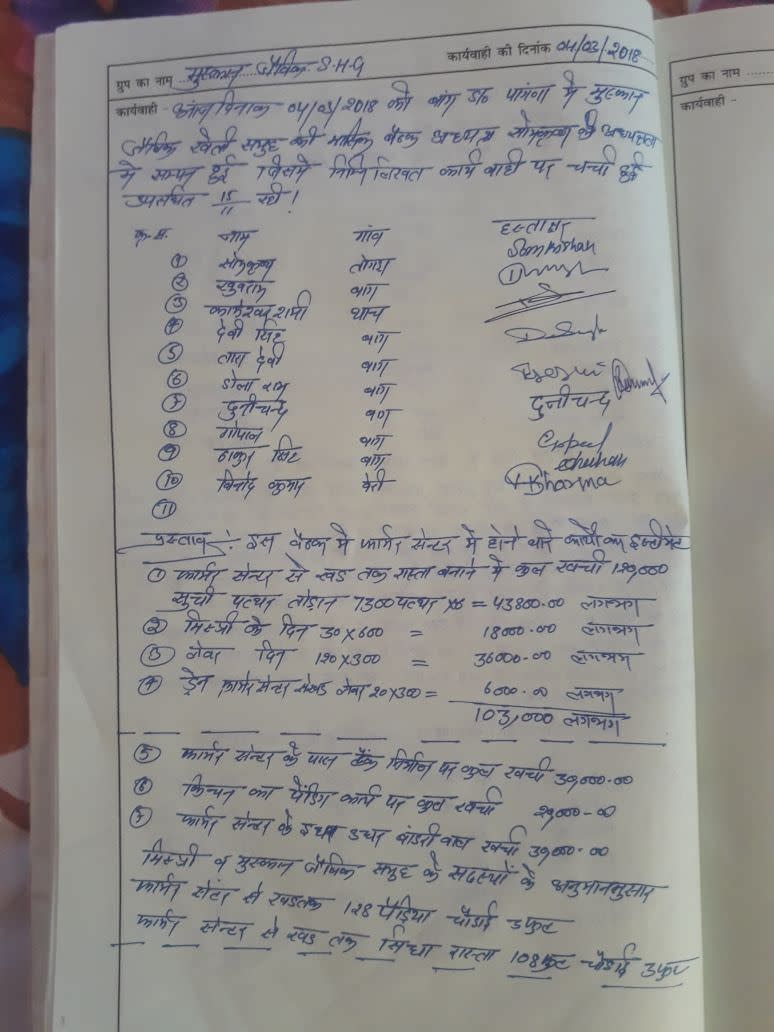 ग्रुप का नाम ...मुस्कान जैविक S.H.G
कार्यवाही की दिनांक 04/03/2018
कार्यवाही - आज दिनांक 04/03/2018 को बाग डा० पांगणा में मुस्कान
जैविक खेती समुह की मासिक बैठक अध्यक्ष सोमकृष्ण की अध्यक्षता
में सम्पन हुई जिसमें निम्नलिखित कार्यवाही पर चर्चा हुई
उपस्थित 15/11 रही।
क्र.स. नाम गांव हस्ताक्षर
① सोमकृष्ण Somkrishan
② खुबराम बाग
③ शर्मा थाच
④ देवी सिंह बाग
⑤ तारा देवी बाग
⑥ डोला राम बाग
⑦ दुनीचन्द बाग दुनीचन्द
⑧ गोपाल बाग Gopal
⑨ ठाकुर सिंह बाग chauhan
⑩ विनोद कुमार Sharma
⑪
प्रस्ताव :- इस बैठक में फार्मर सेन्टर में होने वाले कार्यों का
① फार्मर सेन्टर से खड तक रास्ता बनाने में कुल खर्चा 120,000
सुची पत्थर तोड़ान 7300 पत्थर x6 = 43800.00 लगभग
② मिस्त्री के दिन 30x600 = 18000.00 लगभग
③ लेबर दिन 120x300 = 36000.00 लगभग
④ ड्रेन फार्मर सेन्टर से खड लेबर 20x300 = 6000.00 लगभग
103,000 लगभग
⑤ फार्मर सेन्टर के पास टैंक निर्माण पर कुल खर्चा 30,000.00
⑥ किचन का पेंडिंग कार्य पर कुल खर्चा 29,000-00
⑦ फार्मर सेन्टर के इधर उधर बांडरी वाल खर्चा 39,000.00
मिस्त्री व मुस्कान जैविक समुह के सदस्यों के अनुमाननुसार
फार्मर सेंटर से खडतक 128 पैड़िया चौडाई 3फुट
फार्मर सेन्टर से खड तक सिधा रास्ता 108फुट चौडाई 3फुट
ग्रुप का नाम ......
कार्यवाही -